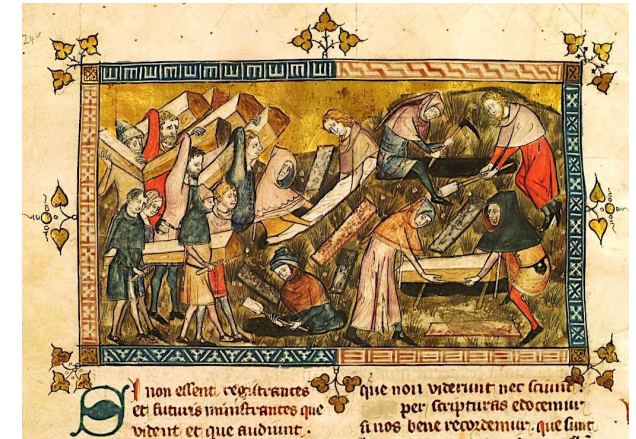 24v
Si non essent registrantes
et futuris ministrantes que
vident et que audiunt.
que non viderunt nec sciunt
per scripturas edocemur
si nos bene recordemur. que sunt